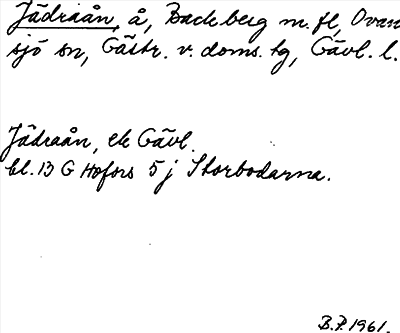 Jädraån, å, Backberg m.fl, Ovan
sjö sn, Gästr. v. doms. tg, Gävl. l.
Jädraån, ek Gävl.
bl. 13 G Hofors 5 j Storbodarna.
B.P. 1961.